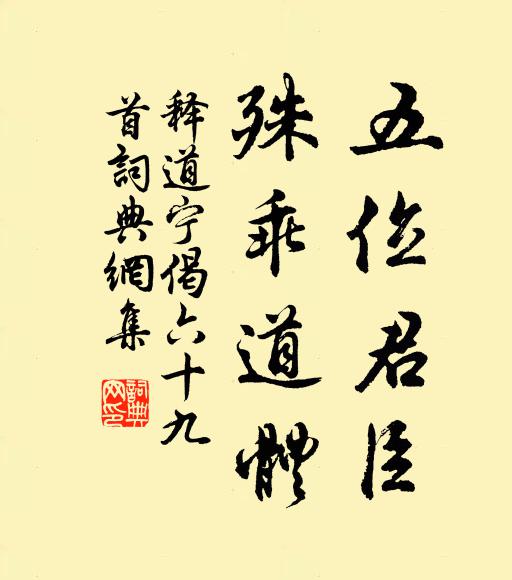 五位君臣
殊乖道體
释道宁偈六十九
首詞典網集
詞典網印